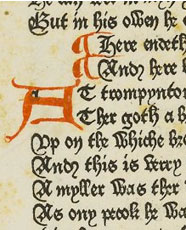 But in his owen he
Here endeth
And here b
AT trompynton
Ther goth a b
Up on the whiche bro
And this is verry
A myller was ther
As ony pecok he wa